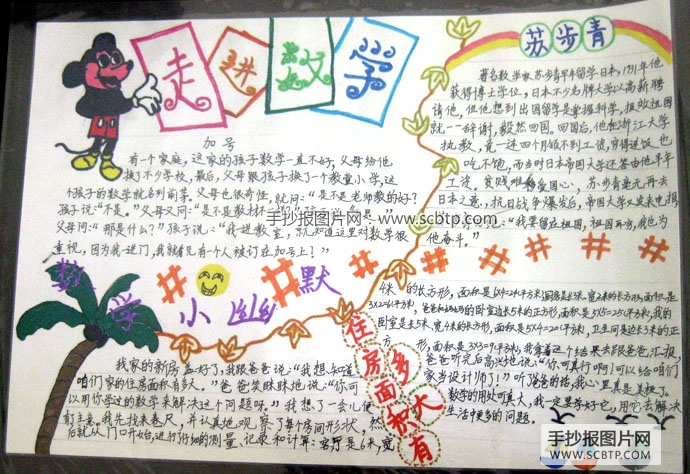 走进数学
加号
有一个家庭，这家的孩子数学一直不好，父母给他
换了不少学校，最后，父母跟孩子换了一个教堂小学，这
个孩子的数学就名列前茅。父母也很奇怪，就问：“是不是老师教的好？”
孩子说：“不是。”父母又问：“是不是教材不
父母问：“那是什么？”孩子说：“我一进教室，就知道这里对数学很
重视，因为我一进门，我就看见有个人被订在加号上？”
手抄报图片网-www.scbtp.com
数学小幽默
苏步青
著名数学家苏步青早年留学日本，1931年他
获得博士学位，日本不少名牌大学以高薪聘
请他，但他想到出国留学是掌握科学，报效祖国
就一一辞谢，毅然回国。四国后，他在浙江大学
执教，竟一连四个月领不到工资，穷得连饭也
吃不饱，而当时日本帝国大学还答由他半年
工资。贫贱难移爱国心，苏步青毫无再去
日本之意，抗日战争爆发后，帝国大学又发来电报
“我要留在祖国，祖国再穷，我也为
他奋斗。”
住房面积有多大
我家的新房盖好了，我跟爸爸说：“我想知道
咱们家的住房面积有多大。”爸爸笑眯眯地说：“你可
以用你学过的数学来解决这个问题呀。”我想了一会儿便
有了主意。我先找来卷尺，并认真地观察了每个房间形状，然
后就从门口开始，进行仔细的测量、记录和计算：客厅是6米，宽
4米的长方形，面积是6×4=24平方米；厨房是长3米、宽2米的长方形，面积是
3×2=6平方米，爸爸和妈妈的卧室是边长5米的正方形，面积是5×5=25平方米，我的
卧室是长5米，宽4米的长方形，面积是5×4=20平方米，卫生间是边长3米的正方
形，面积是3×3=9平方米，我拿着这个结果去跟爸爸汇报，
爸爸听完后高兴地说：“你可真行啊！可以给咱们
家当设计师了！”听了爸爸的话，我心里真是美极了。
数学的用处可真大，我一定要学好它，用它去解决
生活中更多的问题。
手抄报图片网
WWW.SCBTP.COM